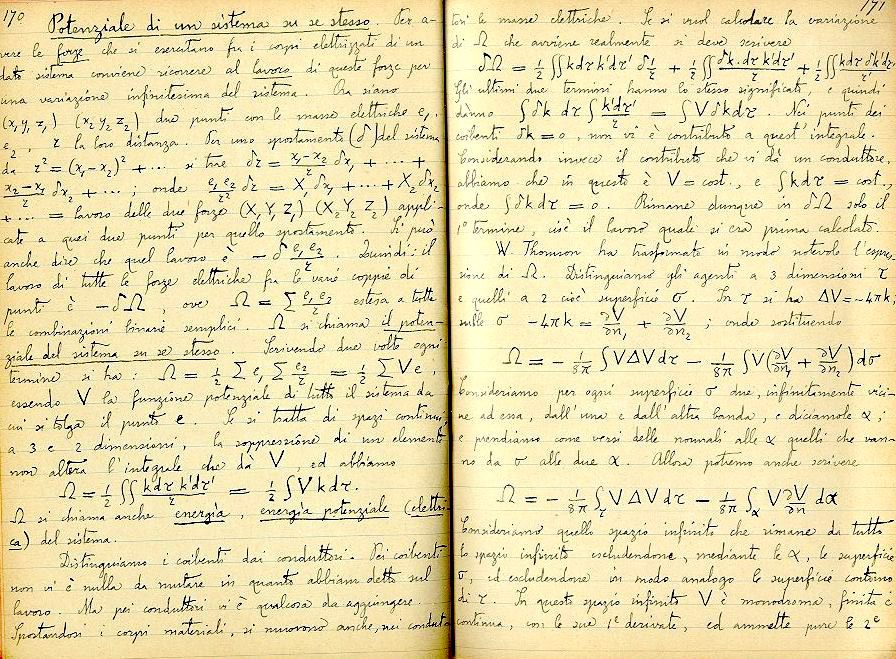 170
Potenziale di un sistema su se stesso. Per a-
vere le forze che si esercitano fra i corpi elettrizzati di un
dato sistema conviene ricorrere al lavoro di queste forze per
una variazione infinitesima del sistema. Ora siano
(x₁ y₁ z₁) (x₂ y₂ z₂) due punti con le masse elettriche e₁,
e₂, r la loro distanza. Per uno spostamento (δ) del sistema
da r² = (x₁-x₂)² + ... si trae δr = (x₁-x₂)/r δx₁ + ... +
(x₂-x₁)/r δx₂ + ... ; onde e₁e₂/r² δr = X₁δx₁ + ... + X₂δx₂
+ ... = lavoro delle due forze (X₁Y₁Z₁) (X₂Y₂Z₂) appli-
cate a quei due punti per quello spostamento. Si può
anche dire che quel lavoro è - δ e₁e₂/r. Quindi: il
lavoro di tutte le forze elettriche fra le varie coppie di
punti è - δΩ, ove Ω = Σ e₁e₂/r estesa a tutte
le combinazioni binarie semplici. Ω si chiama il poten-
ziale del sistema su se stesso. Scrivendo due volte ogni
termine si ha: Ω = ½ Σ e₁ Σ e₂/r = ½ Σ V e,
essendo V la funzione potenziale di tutto il sistema da
cui si tolga il punto e. Se si tratta di spazi continui,
a 3 e 2 dimensioni, la soppressione di un elemento
non altera l'integrale che dà V, ed abbiamo
Ω = ½ ∫∫ kdτ k'dτ'/r = ½ ∫ V k dτ.
Ω si chiama anche energia, energia potenziale (elettri-
ca) del sistema.
Distinguiamo i coibenti dai conduttori. Pei coibenti
non vi è nulla da mutare in quanto abbiam detto sul
lavoro. Ma pei conduttori vi è qualcosa da aggiungere.
Spostandosi i corpi materiali, si muovono anche, nei condut-
171
tori le masse elettriche. Se si vuol calcolare la variazione
di Ω che avviene realmente si deve scrivere
δΩ = ½ ∫∫ kdτ k'dτ' δ 1/r + ½ ∫∫ δk.dτ k'dτ'/r + ½ ∫∫ kdτ δk'dτ'/r
Gli ultimi due termini hanno lo stesso significato, e quindi
dànno ∫ δk dτ ∫ k'dτ'/r = ∫ V δk dτ. Nei punti dei
coibenti δk = 0, non vi è contributo a quest'integrale.
Considerando invece il contributo che vi dà un conduttore,
abbiamo che in questo è V = cost., e ∫ k dτ = cost.,
onde ∫ δk dτ = 0. Rimane dunque in δΩ solo il
1° termine, cioè il lavoro quale si era prima calcolato.
W. Thomson ha trasformato in modo notevole l'espres-
sione di Ω. Distinguiamo gli agenti a 3 dimensioni τ
e quelli a 2 cioè superficie σ. In τ si ha ΔV = -4πk,
sulle σ -4πk = ∂V/∂n₁ + ∂V/∂n₂ ; onde sostituendo
Ω = - 1/8π ∫ V ΔV dτ - 1/8π ∫ V (∂V/∂n₁ + ∂V/∂n₂) dσ
Consideriamo per ogni superficie σ due, infinitamente vici-
ne ad essa, dall'una e dall'altra banda, e diciamole α,
e prendiamo come versi delle normali alle α quelli che van-
no da σ alle due α. Allora potremo anche scrivere
Ω = - 1/8π ∫τ V ΔV dτ - 1/8π ∫α V ∂V/∂n dα
Consideriamo quello spazio infinito che rimane da tutto
lo spazio infinito escludendone, mediante le α, le superficie
σ, ed escludendone in modo analogo le superficie contorno
di τ. In questo spazio infinito V è monodroma, finita e
continua, con le sue 1e derivate, ed ammette pure le 2e